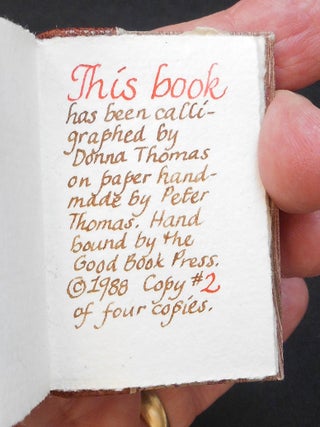 This book
has been calli-
graphed by
Donna Thomas
on paper hand-
made by Peter
Thomas. Hand
bound by the
Good Book Press.
©1988 Copy #2
of four copies.